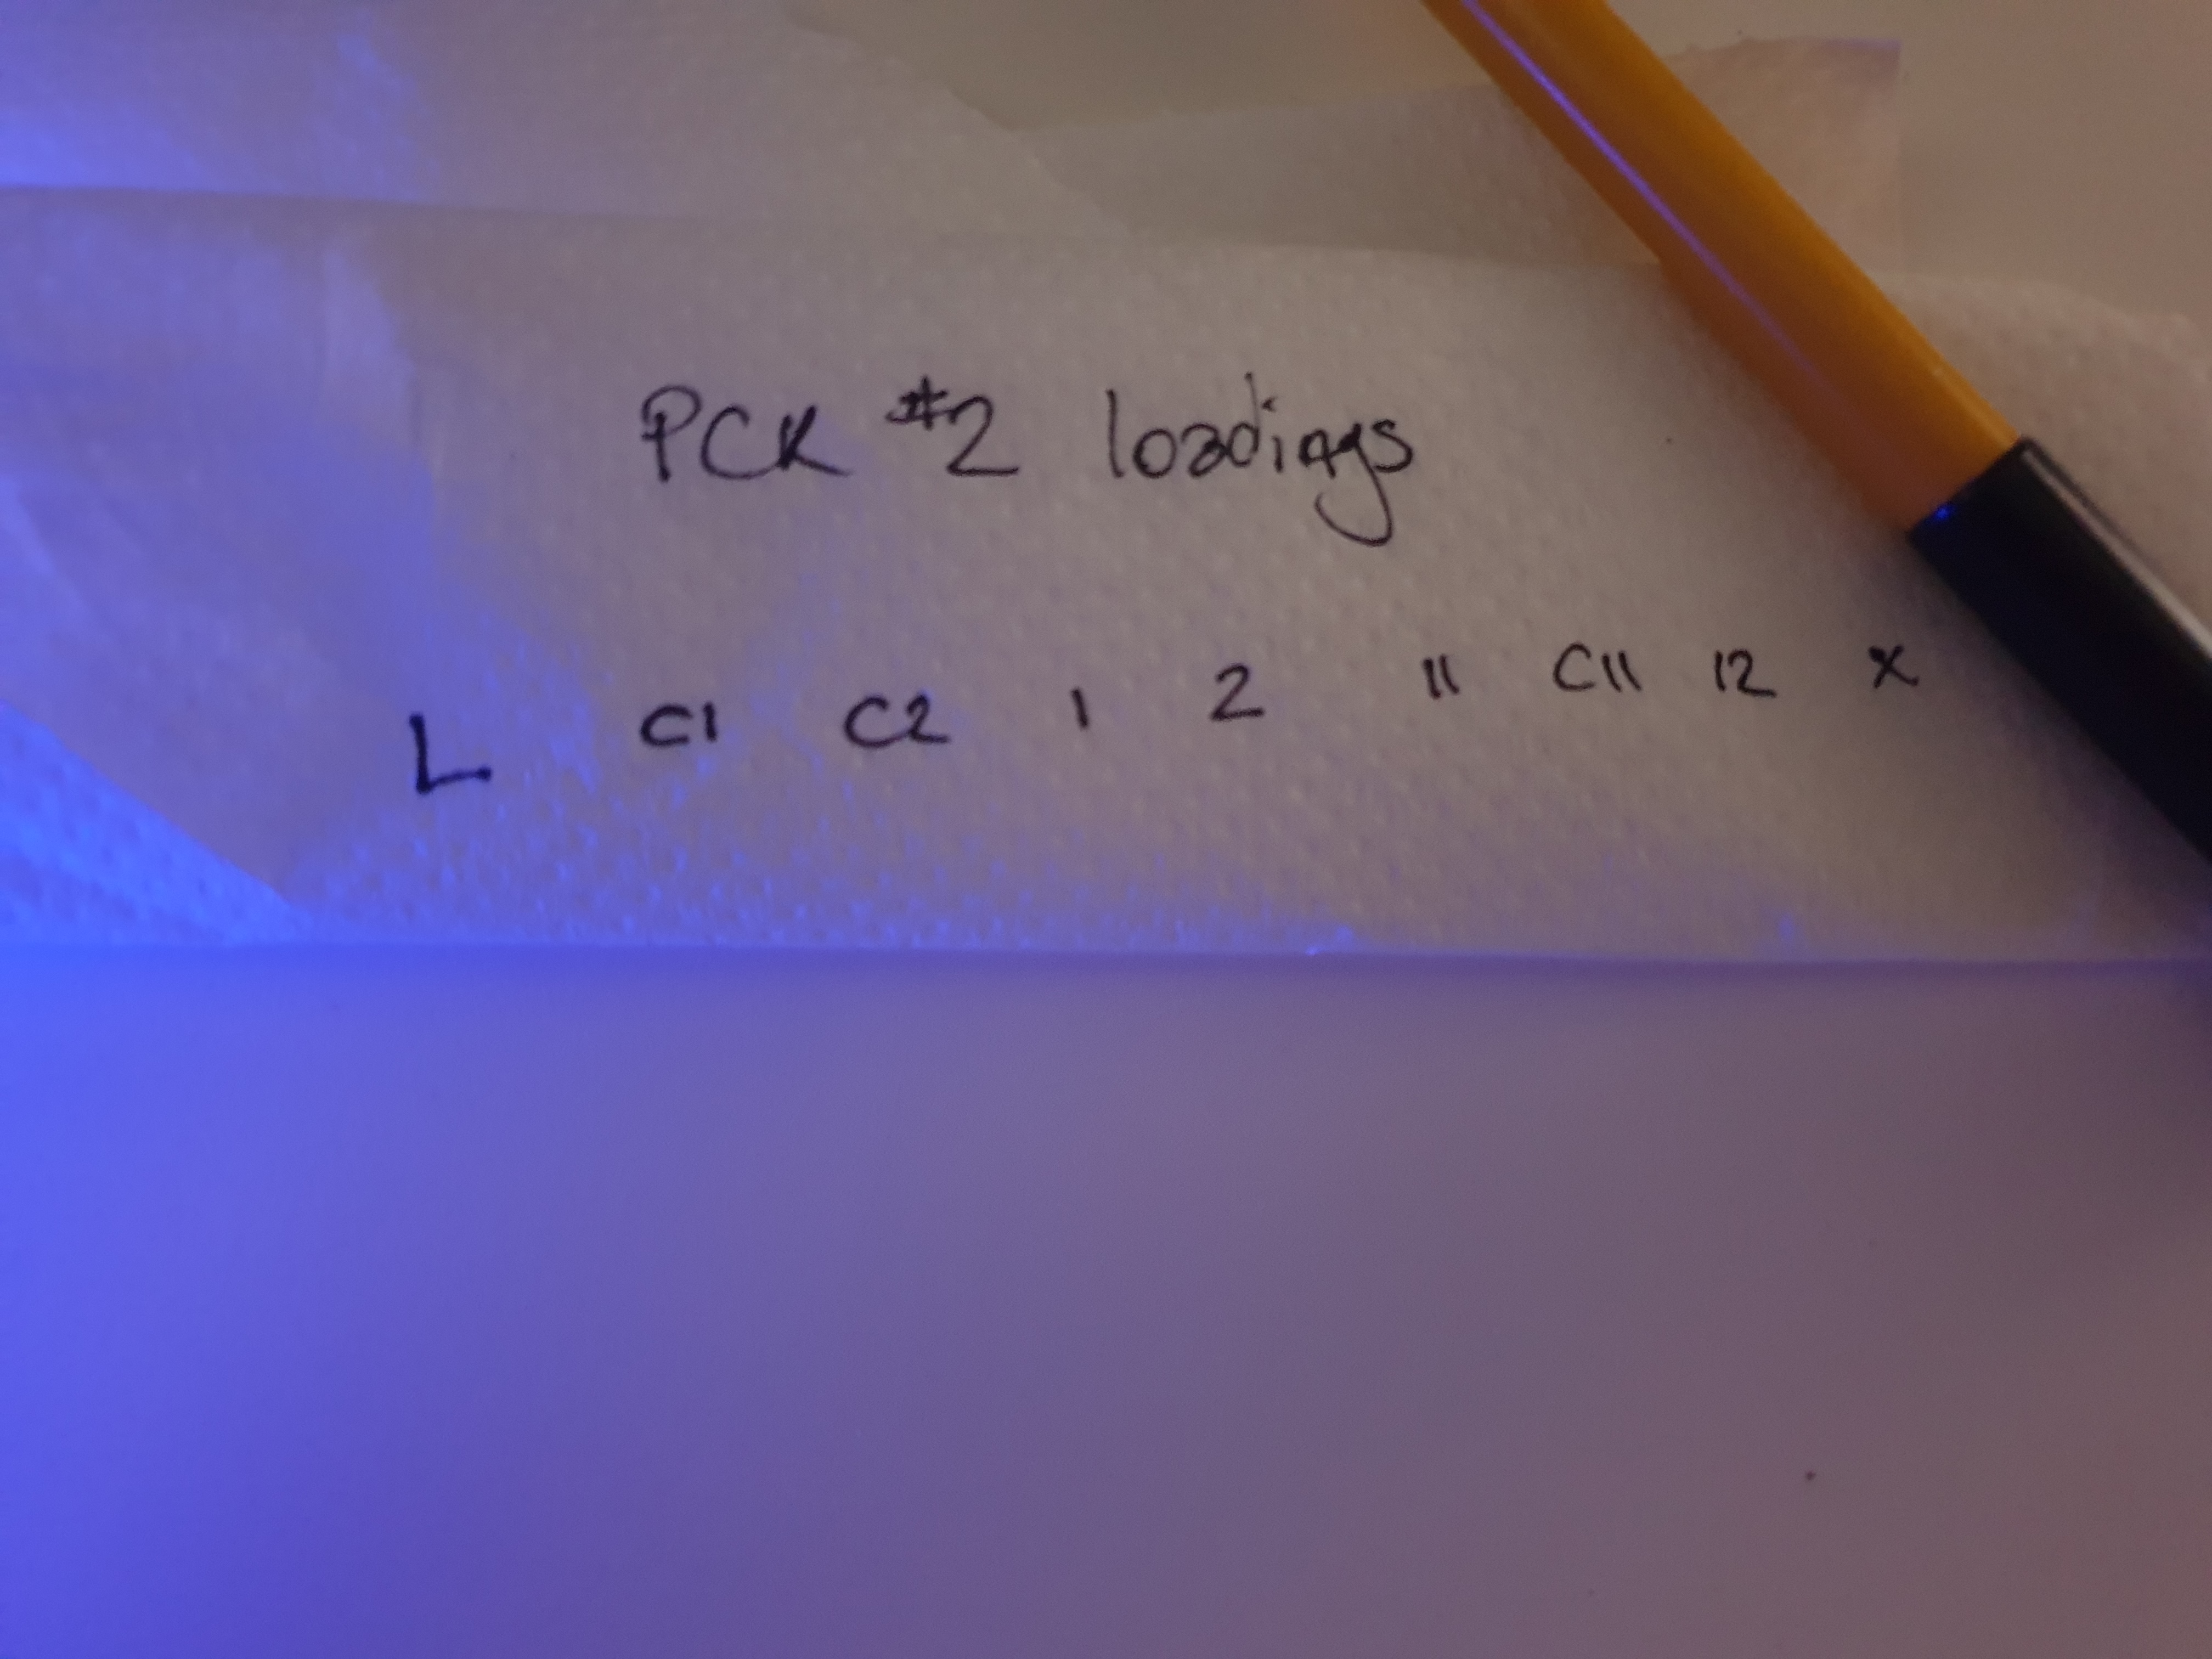 PCR #2 loadings
L C1 C2 1 2 11 C11 12 X